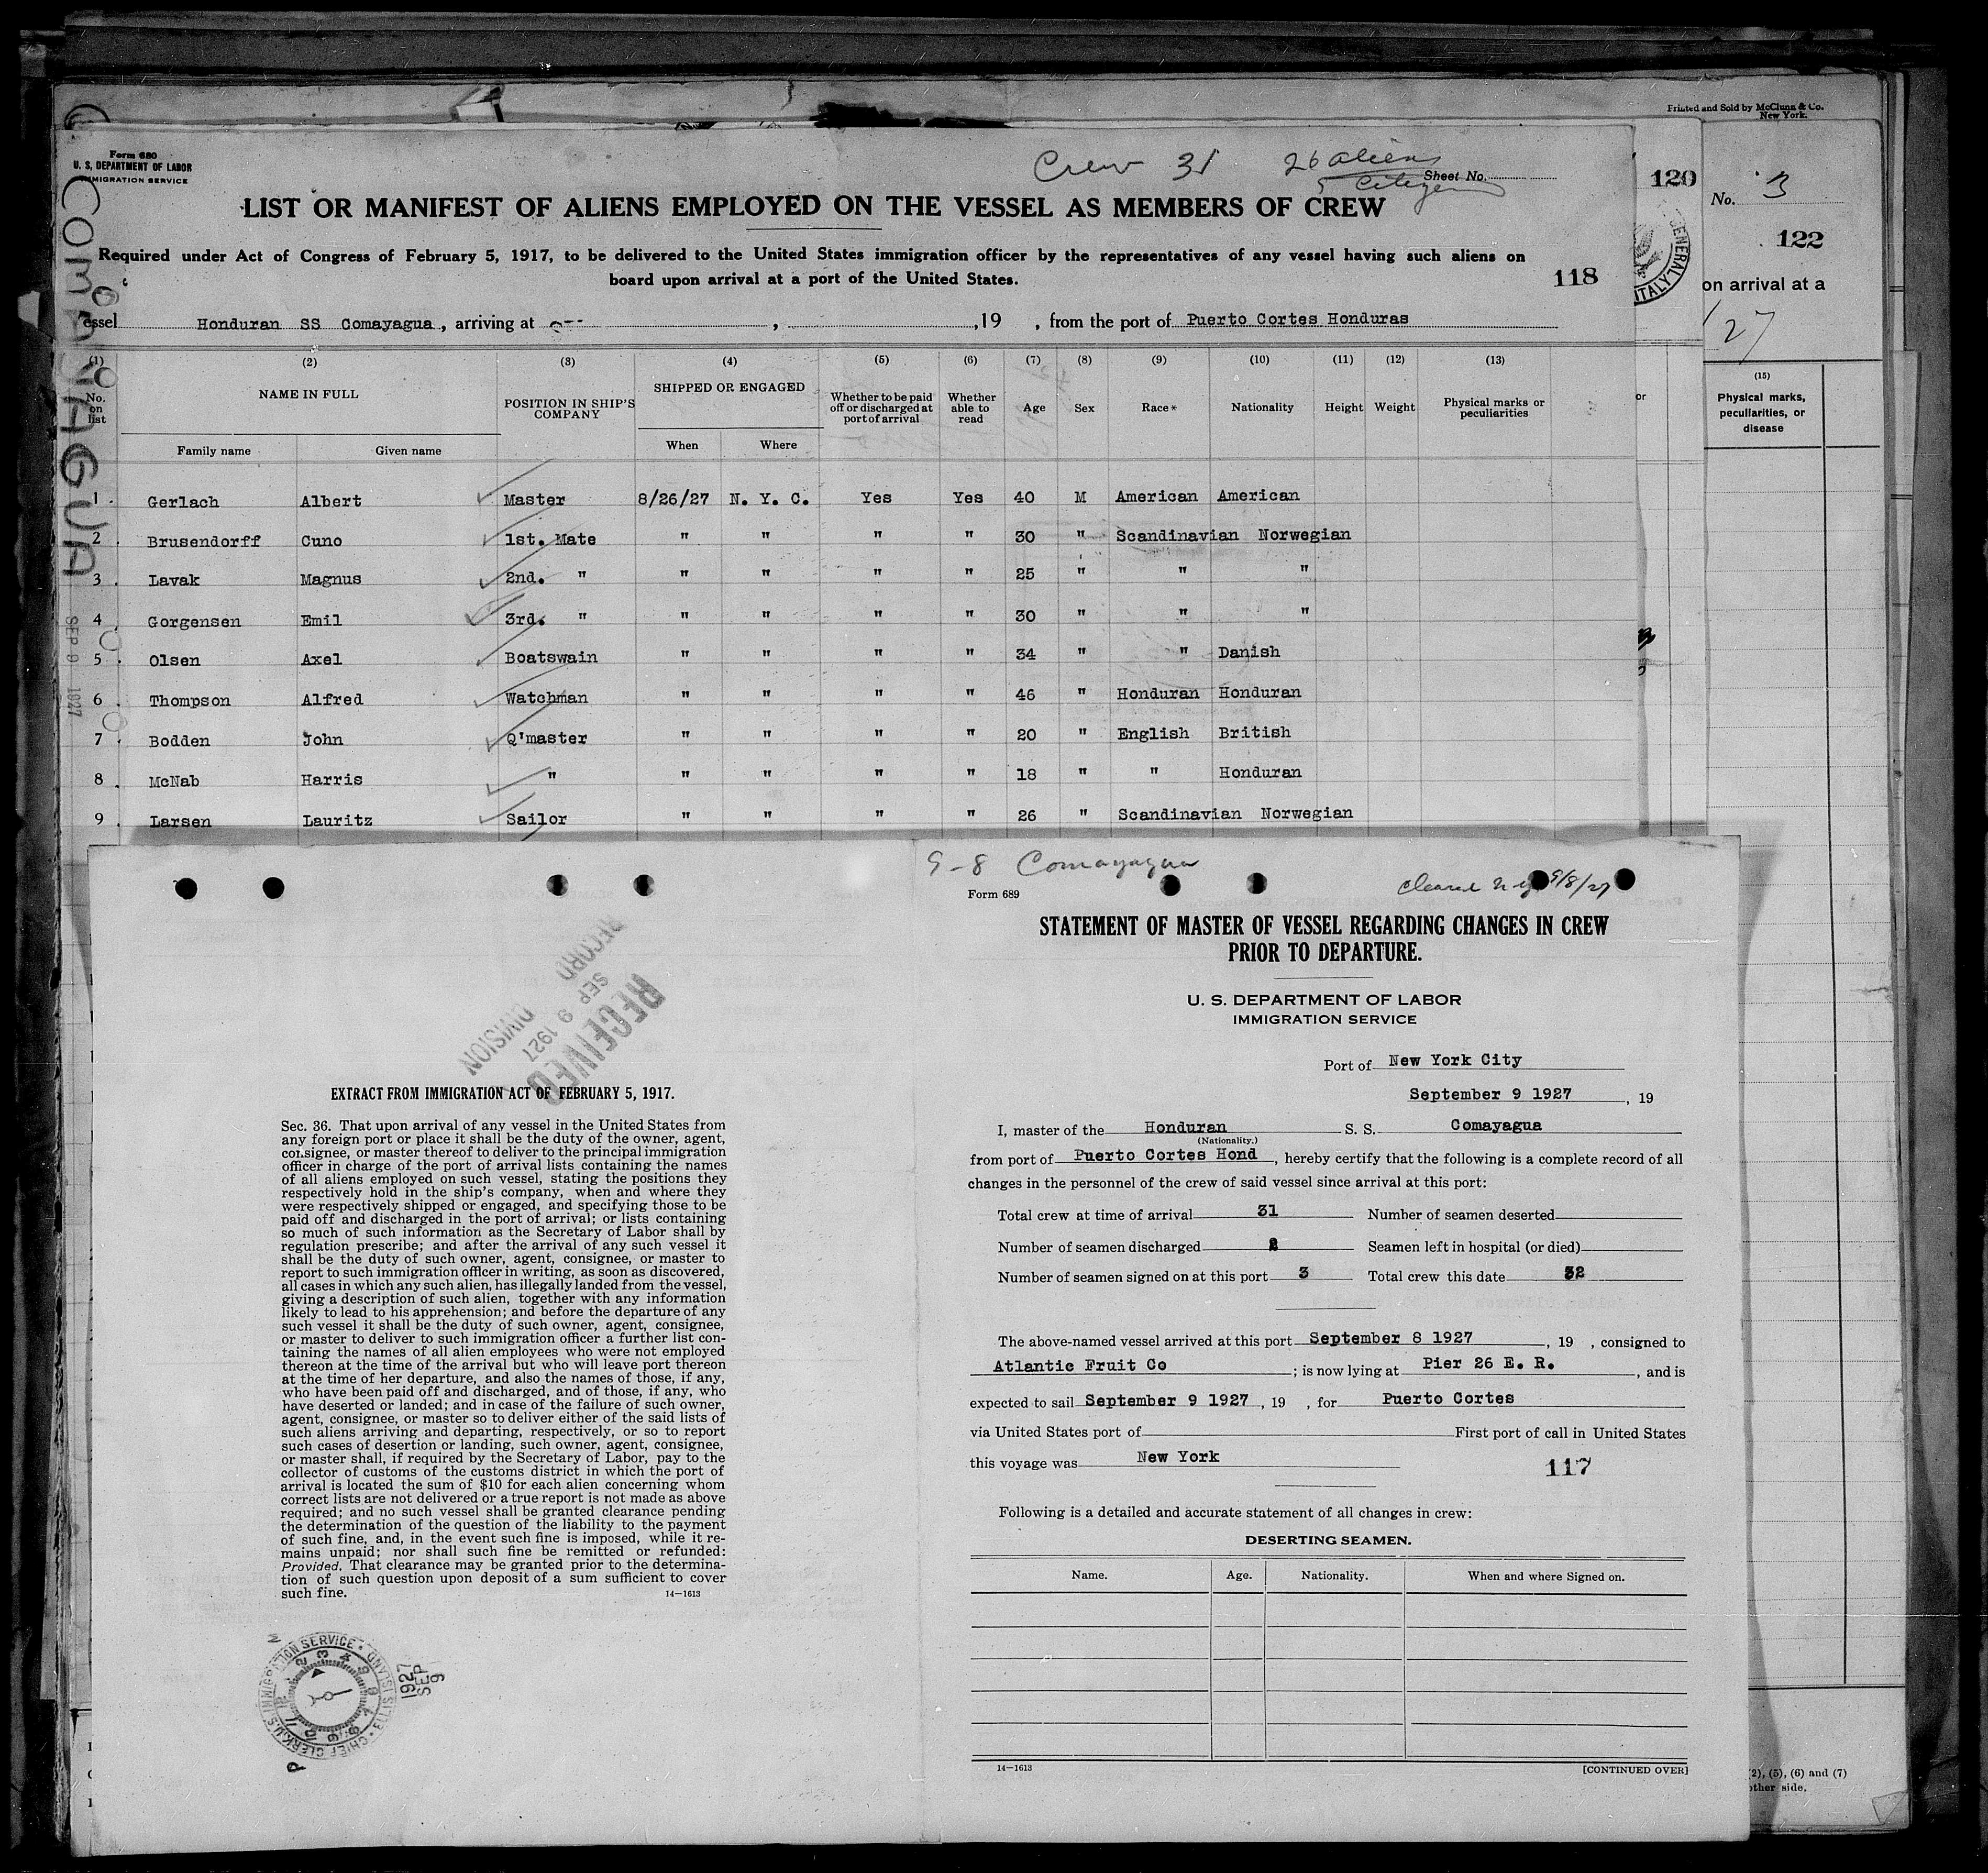 Printed and Sold by McClunn & Co.
New York.
Form 680
U. S. DEPARTMENT OF LABOR
IMMIGRATION SERVICE
Crew 31 26 aliens
5 Citizens
Sheet No.
120
No. 3
122
LIST OR MANIFEST OF ALIENS EMPLOYED ON THE VESSEL AS MEMBERS OF CREW
Required under Act of Congress of February 5, 1917, to be delivered to the United States immigration officer by the representatives of any vessel having such aliens on
board upon arrival at a port of the United States.
118
ENERAL
ITALY
on arrival at a
27
COMAYAGUA
SEP 9 1927
essel Honduran SS Comayagua, arriving at , ,19 , from the port of Puerto Cortes Honduras
(1) (2) (3) (4) (5) (6) (7) (8) (9) (10) (11) (12) (13)
No. on list NAME IN FULL POSITION IN SHIP'S COMPANY SHIPPED OR ENGAGED Whether to be paid off or discharged at port of arrival Whether able to read Age Sex Race* Nationality Height Weight Physical marks or peculiarities
Family name Given name When Where
or
(15)
Physical marks, peculiarities, or disease
1 . Gerlach Albert Master 8/26/27 N. Y. C. Yes Yes 40 M American American
2 . Brusendorff Cuno 1st. Mate " " " " 30 " Scandinavian Norwegian
3 . Lavak Magnus 2nd. " " " " " 25 " " "
4 . Gorgensen Emil 3rd. " " " " " 30 " " "
5 . Olsen Axel Boatswain " " " " 34 " " Danish
6 . Thompson Alfred Watchman " " " " 46 " Honduran Honduran
7 . Bodden John Q'master " " " " 20 " English British
8 . McNab Harris " " " " " 18 " " Honduran
9 . Larsen Lauritz Sailor " " " " 26 " Scandinavian Norwegian
RECEIVED
SEP 9 1927
RECORD DIVISION
EXTRACT FROM IMMIGRATION ACT OF FEBRUARY 5, 1917.
Sec. 36. That upon arrival of any vessel in the United States from
any foreign port or place it shall be the duty of the owner, agent,
consignee, or master thereof to deliver to the principal immigration
officer in charge of the port of arrival lists containing the names
of all aliens employed on such vessel, stating the positions they
respectively hold in the ship's company, when and where they
were respectively shipped or engaged, and specifying those to be
paid off and discharged in the port of arrival; or lists containing
so much of such information as the Secretary of Labor shall by
regulation prescribe; and after the arrival of any such vessel it
shall be the duty of such owner, agent, consignee, or master to
report to such immigration officer in writing, as soon as discovered,
all cases in which any such alien, has illegally landed from the vessel,
giving a description of such alien, together with any information
likely to lead to his apprehension; and before the departure of any
such vessel it shall be the duty of such owner, agent, consignee,
or master to deliver to such immigration officer a further list con-
taining the names of all alien employees who were not employed
thereon at the time of the arrival but who will leave port thereon
at the time of her departure, and also the names of those, if any,
who have been paid off and discharged, and of those, if any, who
have deserted or landed; and in case of the failure of such owner,
agent, consignee, or master so to deliver either of the said lists of
such aliens arriving and departing, respectively, or so to report
such cases of desertion or landing, such owner, agent, consignee,
or master shall, if required by the Secretary of Labor, pay to the
collector of customs of the customs district in which the port of
arrival is located the sum of $10 for each alien concerning whom
correct lists are not delivered or a true report is not made as above
required; and no such vessel shall be granted clearance pending
the determination of the question of the liability to the payment
of such fine, and, in the event such fine is imposed, while it re-
mains unpaid; nor shall such fine be remitted or refunded:
Provided, That clearance may be granted prior to the determina-
tion of such question upon deposit of a sum sufficient to cover
such fine.
14—1613
CHIEF CLERK, U.S. IMMIGRATION SERVICE • ELLIS ISLAND •
1927 SEP 9
9-8 Comayagua
Cleared N Y 9/8/27
Form 689
STATEMENT OF MASTER OF VESSEL REGARDING CHANGES IN CREW
PRIOR TO DEPARTURE.
U. S. DEPARTMENT OF LABOR
IMMIGRATION SERVICE
Port of New York City
September 9 1927 , 19
I, master of the Honduran S. S. Comayagua
(Nationality.)
from port of Puerto Cortes Hond , hereby certify that the following is a complete record of all
changes in the personnel of the crew of said vessel since arrival at this port:
Total crew at time of arrival 31 Number of seamen deserted
Number of seamen discharged 2 Seamen left in hospital (or died)
Number of seamen signed on at this port 3 Total crew this date 32
The above-named vessel arrived at this port September 8 1927 , 19 , consigned to
Atlantic Fruit Co ; is now lying at Pier 26 E. R. , and is
expected to sail September 9 1927 , 19 , for Puerto Cortes
via United States port of First port of call in United States
this voyage was New York
117
Following is a detailed and accurate statement of all changes in crew:
DESERTING SEAMEN.
Name. Age. Nationality. When and where Signed on.
14—1613 [CONTINUED OVER]
2), (5), (6) and (7)
other side.